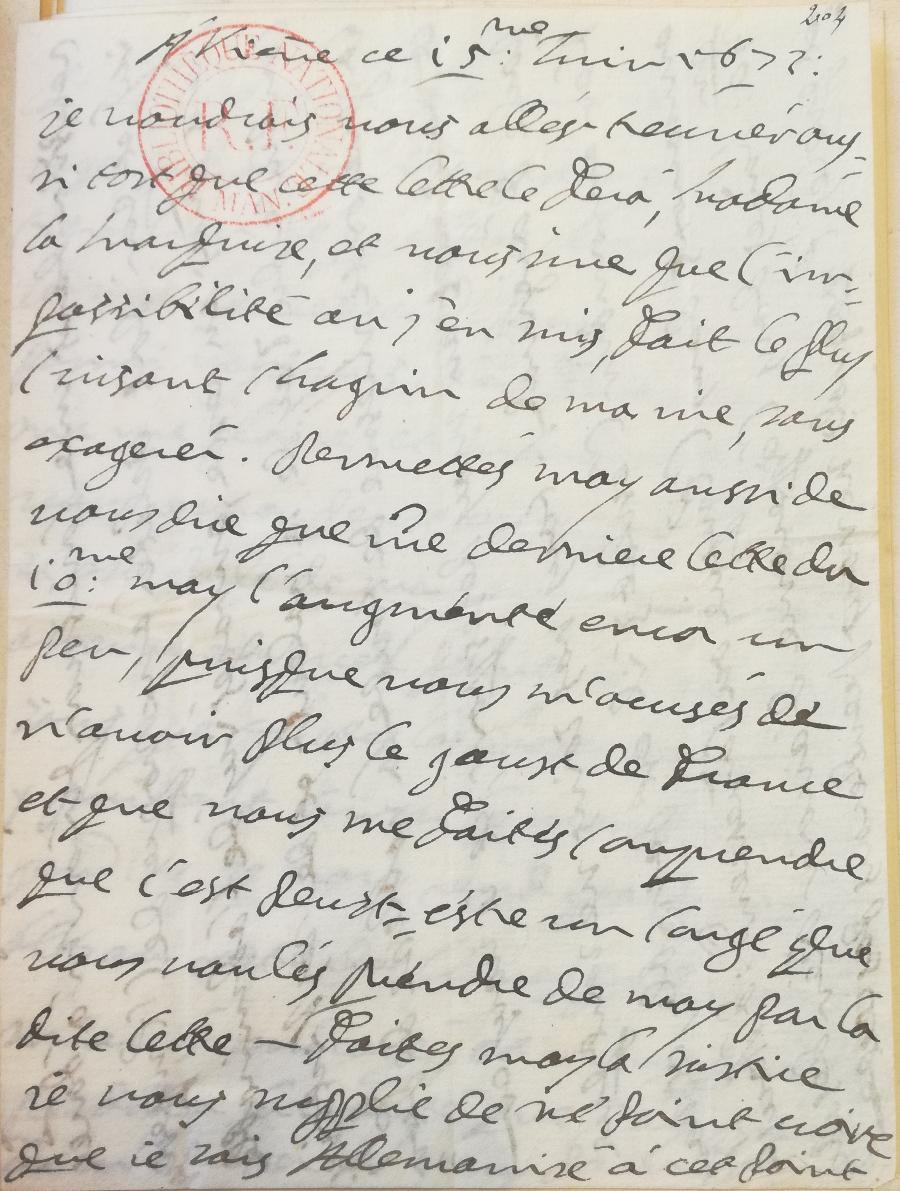 204
A Viene ce 15.me: Juin 1672:
je voudrais vous allér trouvér aus-
si tost que cette lettre le Fera, Madame
la Marquise, et vous iure que l'im-
possibilité ou j'en suis, Fait le plus
Cuisant Chagrin de ma vie, sans
exagerér. Permettés moy aussi de
vous dire que vre derniere lettre du
10.me: may l'augmente encor un
peu, puisque vous m'acusés de
n'avoir plus le goust de France
et que vous me Faites Comprendre
que c'est peust-estre un Congé que
vous voulés prendre de moy par la
dite lettre — Faites moy la iustice
ie vous supplie de ne point croire
que ie sois Allemanisé à cet point
BIBLIOTHEQUE NATIONALE MAN.
R.F.